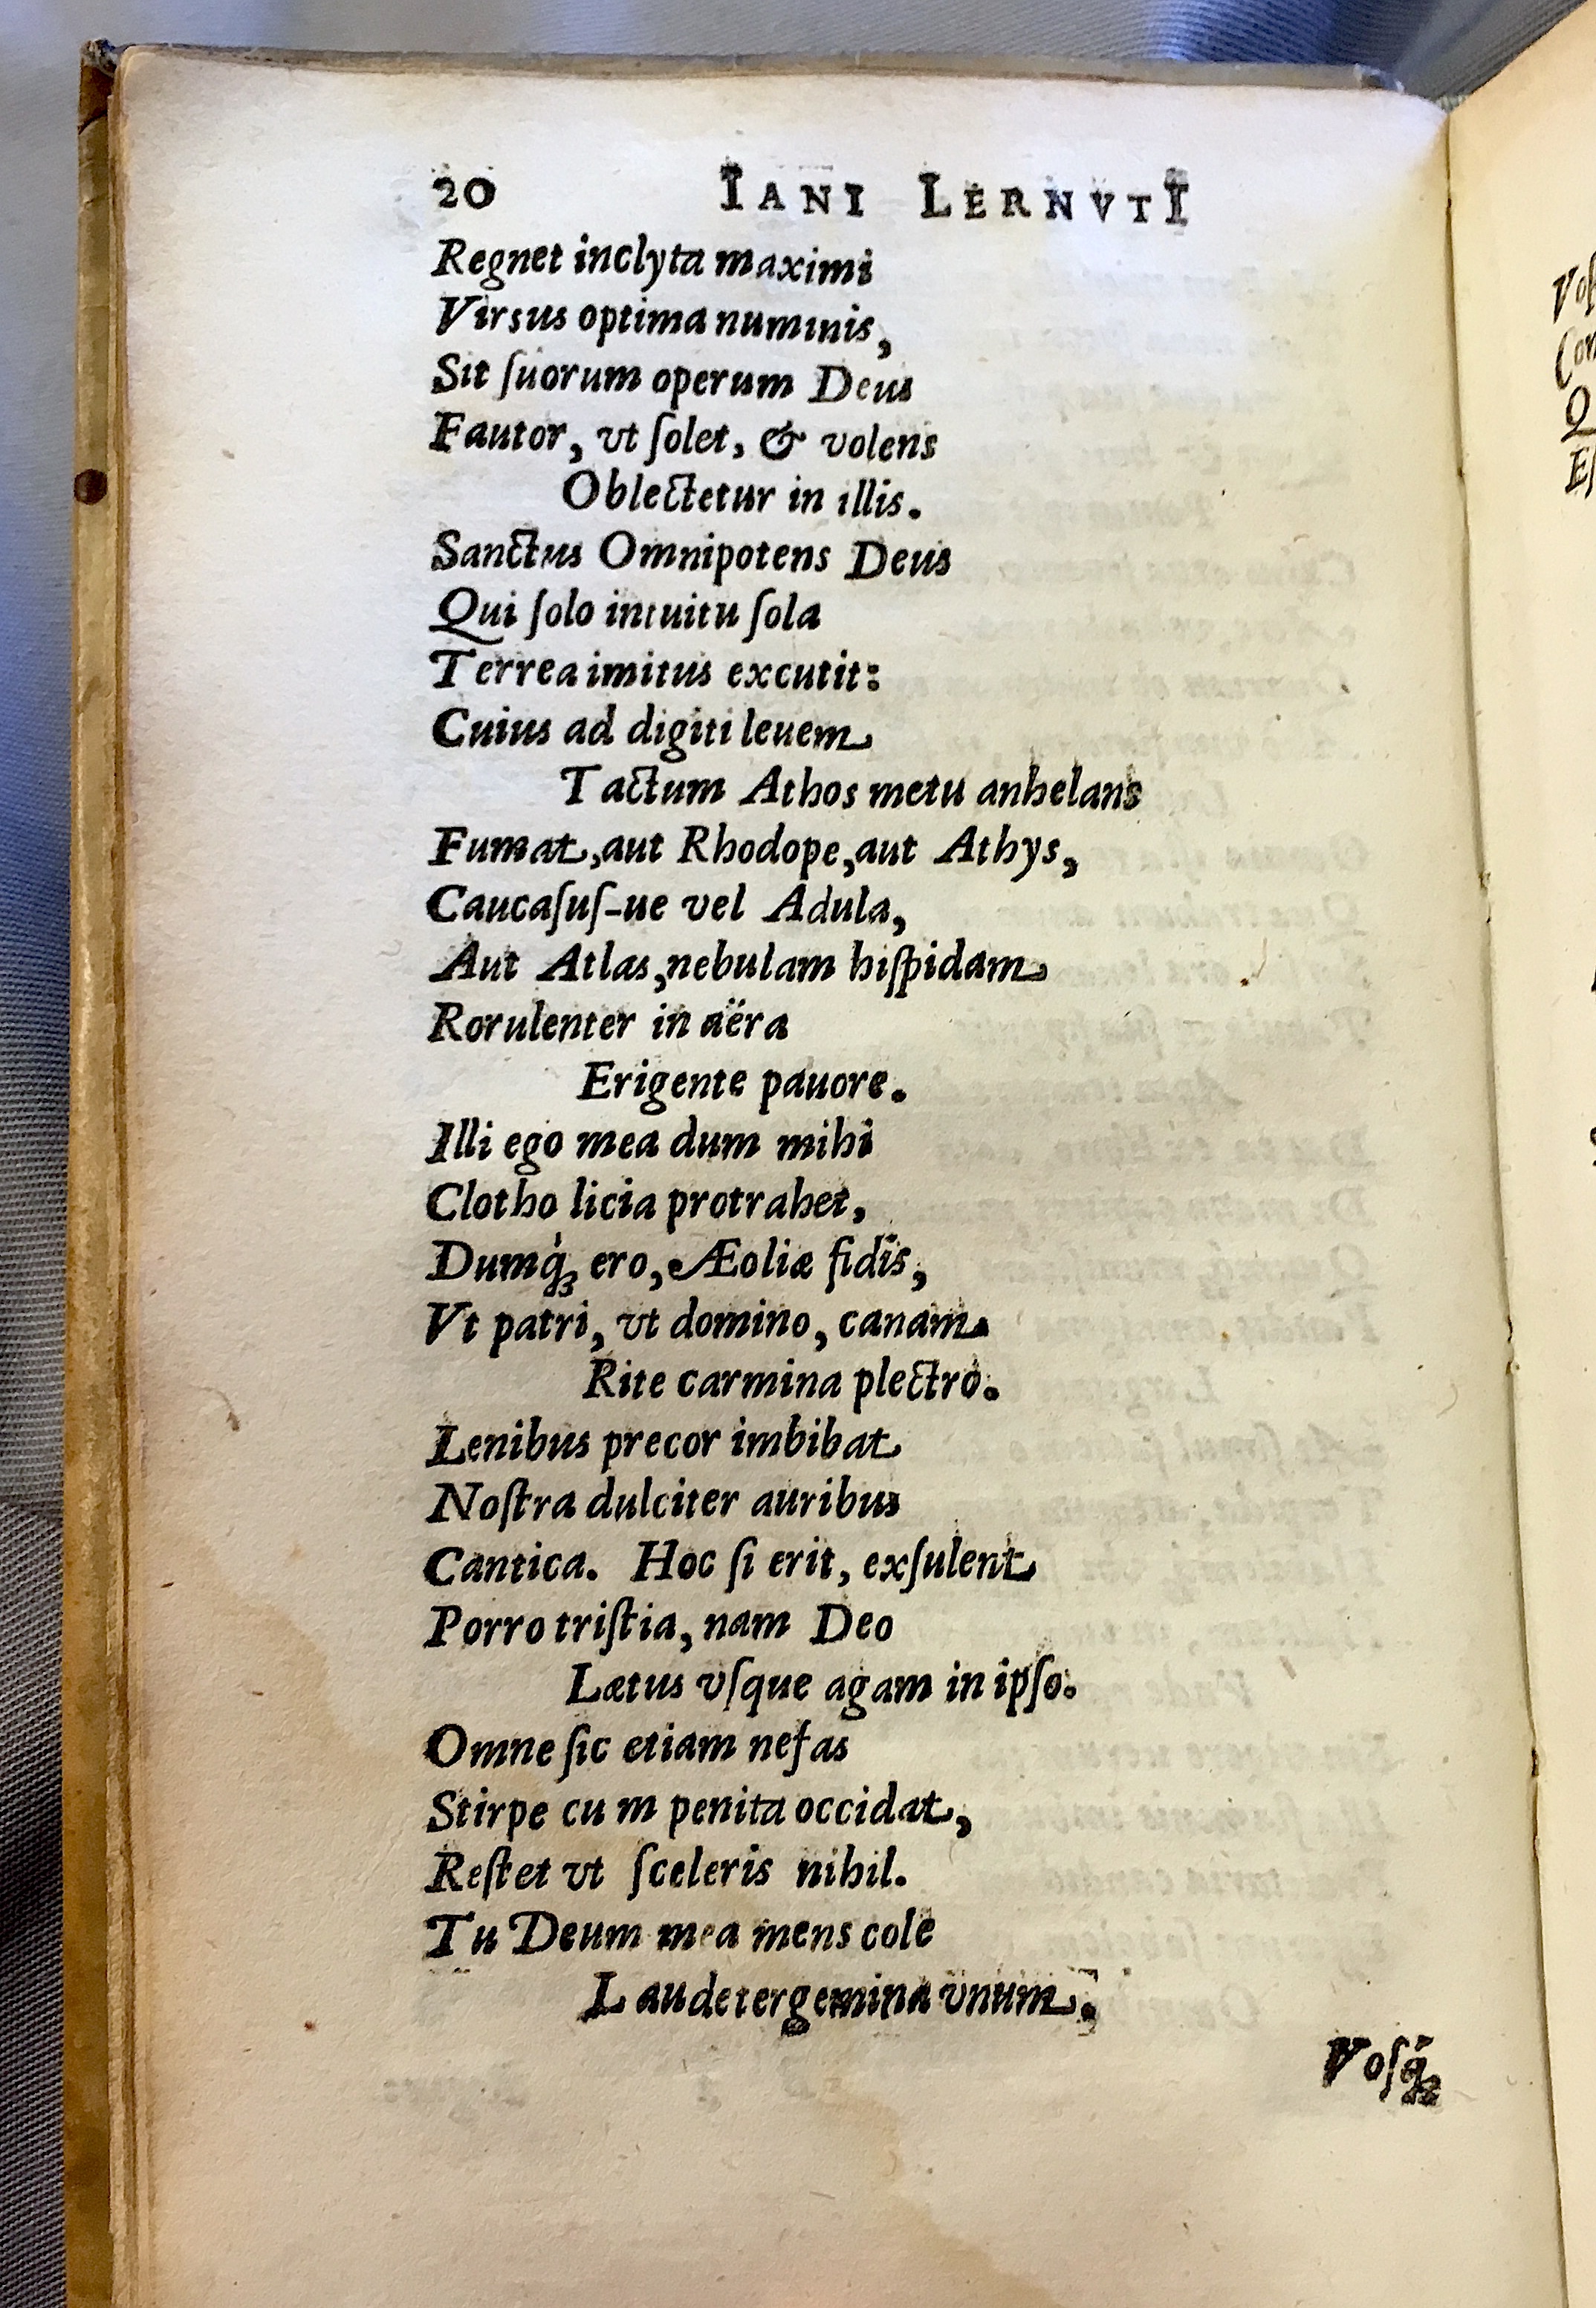 20 IANI LERNVTI
Regnet inclyta maximi
Virsus optima numinis,
Sit ſuorum operum Deus
Fautor, vt ſolet, & volens
Oblectetur in illis.
Sanctus Omnipotens Deus
Qui ſolo intuitu ſola
Terrea imitus excutit:
Cuius ad digiti leuem
Tactum Athos metu anhelans
Fumat, aut Rhodope, aut Athys,
Caucaſuſ-ue vel Adula,
Aut Atlas, nebulam hiſpidam
Rorulenter in aëra
Erigente pauore.
Illi ego mea dum mihi
Clotho licia protrahet,
Dumq́ꝫ ero, Æoliæ fidis,
Vt patri, vt domino, canam
Rite carmina plectro.
Lenibus precor imbibat
Noſtra dulciter auribus
Cantica. Hoc ſi erit, exſulent
Porro triſtia, nam Deo
Lætus vſque agam in ipſo.
Omne ſic etiam nefas
Stirpe cu m penita occidat,
Reſtet vt ſceleris nihil.
Tu Deum mea mens cole
Laude tergemina vnum.
Voſq́ꝫ